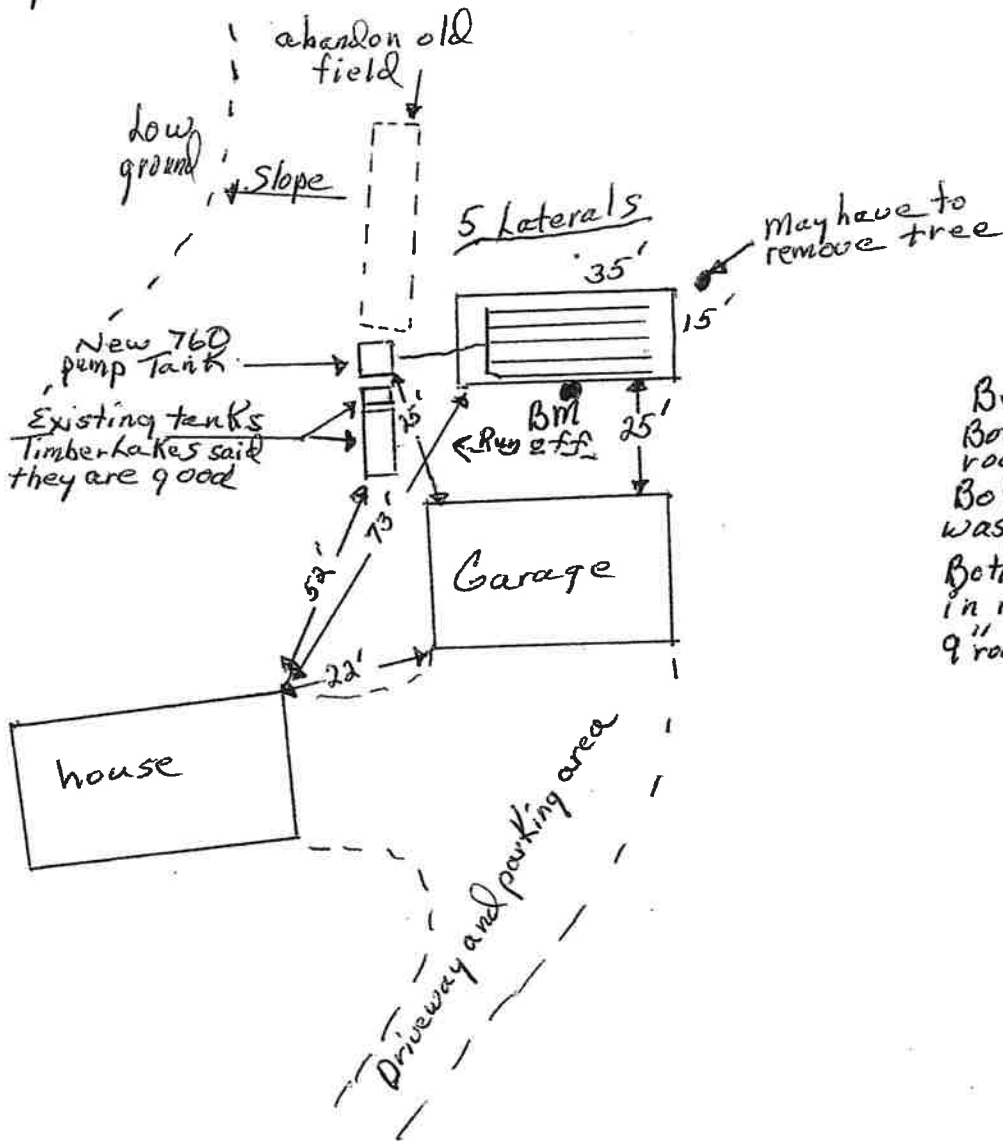 abandon old
field
Low
ground
Slope
5 Laterals
35'
May have to
remove tree
15'
New 760
pump Tank
Existing tanks
TimberLakes said
they are good
25'
BM
25'
Run off
73'
52'
Garage
22'
house
Driveway and parking area
Bo
was
in
9"